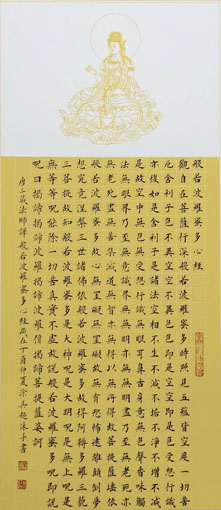 般若波羅蜜多心經
觀自在菩薩行深般若波羅蜜多時照見五蘊皆空度一切苦
厄舍利子色不異空空不異色色即是空空即是色受想行識
亦復如是舍利子是諸法空相不生不滅不垢不淨不增不減
是故空中無色無受想行識無眼耳鼻舌身意無色聲香味觸
法無眼界乃至無意識界無無明亦無無明盡乃至無老死亦
無老死盡無苦集滅道無智亦無得以無所得故菩提薩埵依
般若波羅蜜多故心無罣礙無罣礙故無有恐怖遠離顛倒夢
想究竟涅槃三世諸佛依般若波羅蜜多故得阿耨多羅三藐
三菩提故知般若波羅蜜多是大神呪是大明呪是無上呪是
無等等呪能除一切苦真實不虛故說般若波羅蜜多呪即說
呪曰揭諦揭諦波羅揭諦波羅僧揭諦菩提薩婆訶
唐三藏法師譯般若波羅蜜多心經歲在丁酉仲夏沐手書